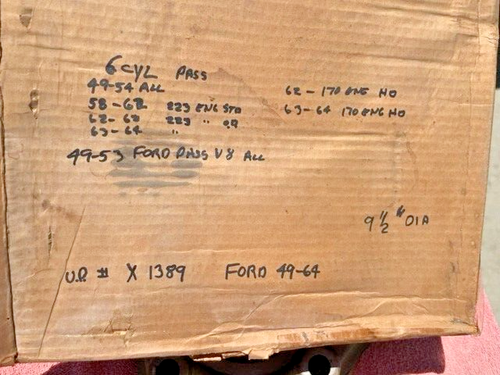 6 CYL PASS
49-54 ALL
58-62 223 ENG STD
62-62 223 " OR
63-64 "
62-170 ENG HD
63-64 170 ENG HD
49-53 FORD PASS V8 ALL
9 1/2 " DIA
U.P. # X 1389 FORD 49-64